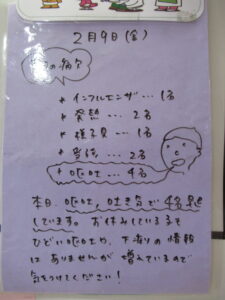 2月9日(金)
今日の病欠
* インフルエンザ … 1名
* 発熱 … 2名
* 様子見 … 1名
* 当係 … 2名
* 嘔吐 … 4名
本日、嘔吐、吐き気で4名
しています。お休みしている子も
ひどい嘔吐や、下痢りの情報
はありませんが増えているので
気をつけてください!